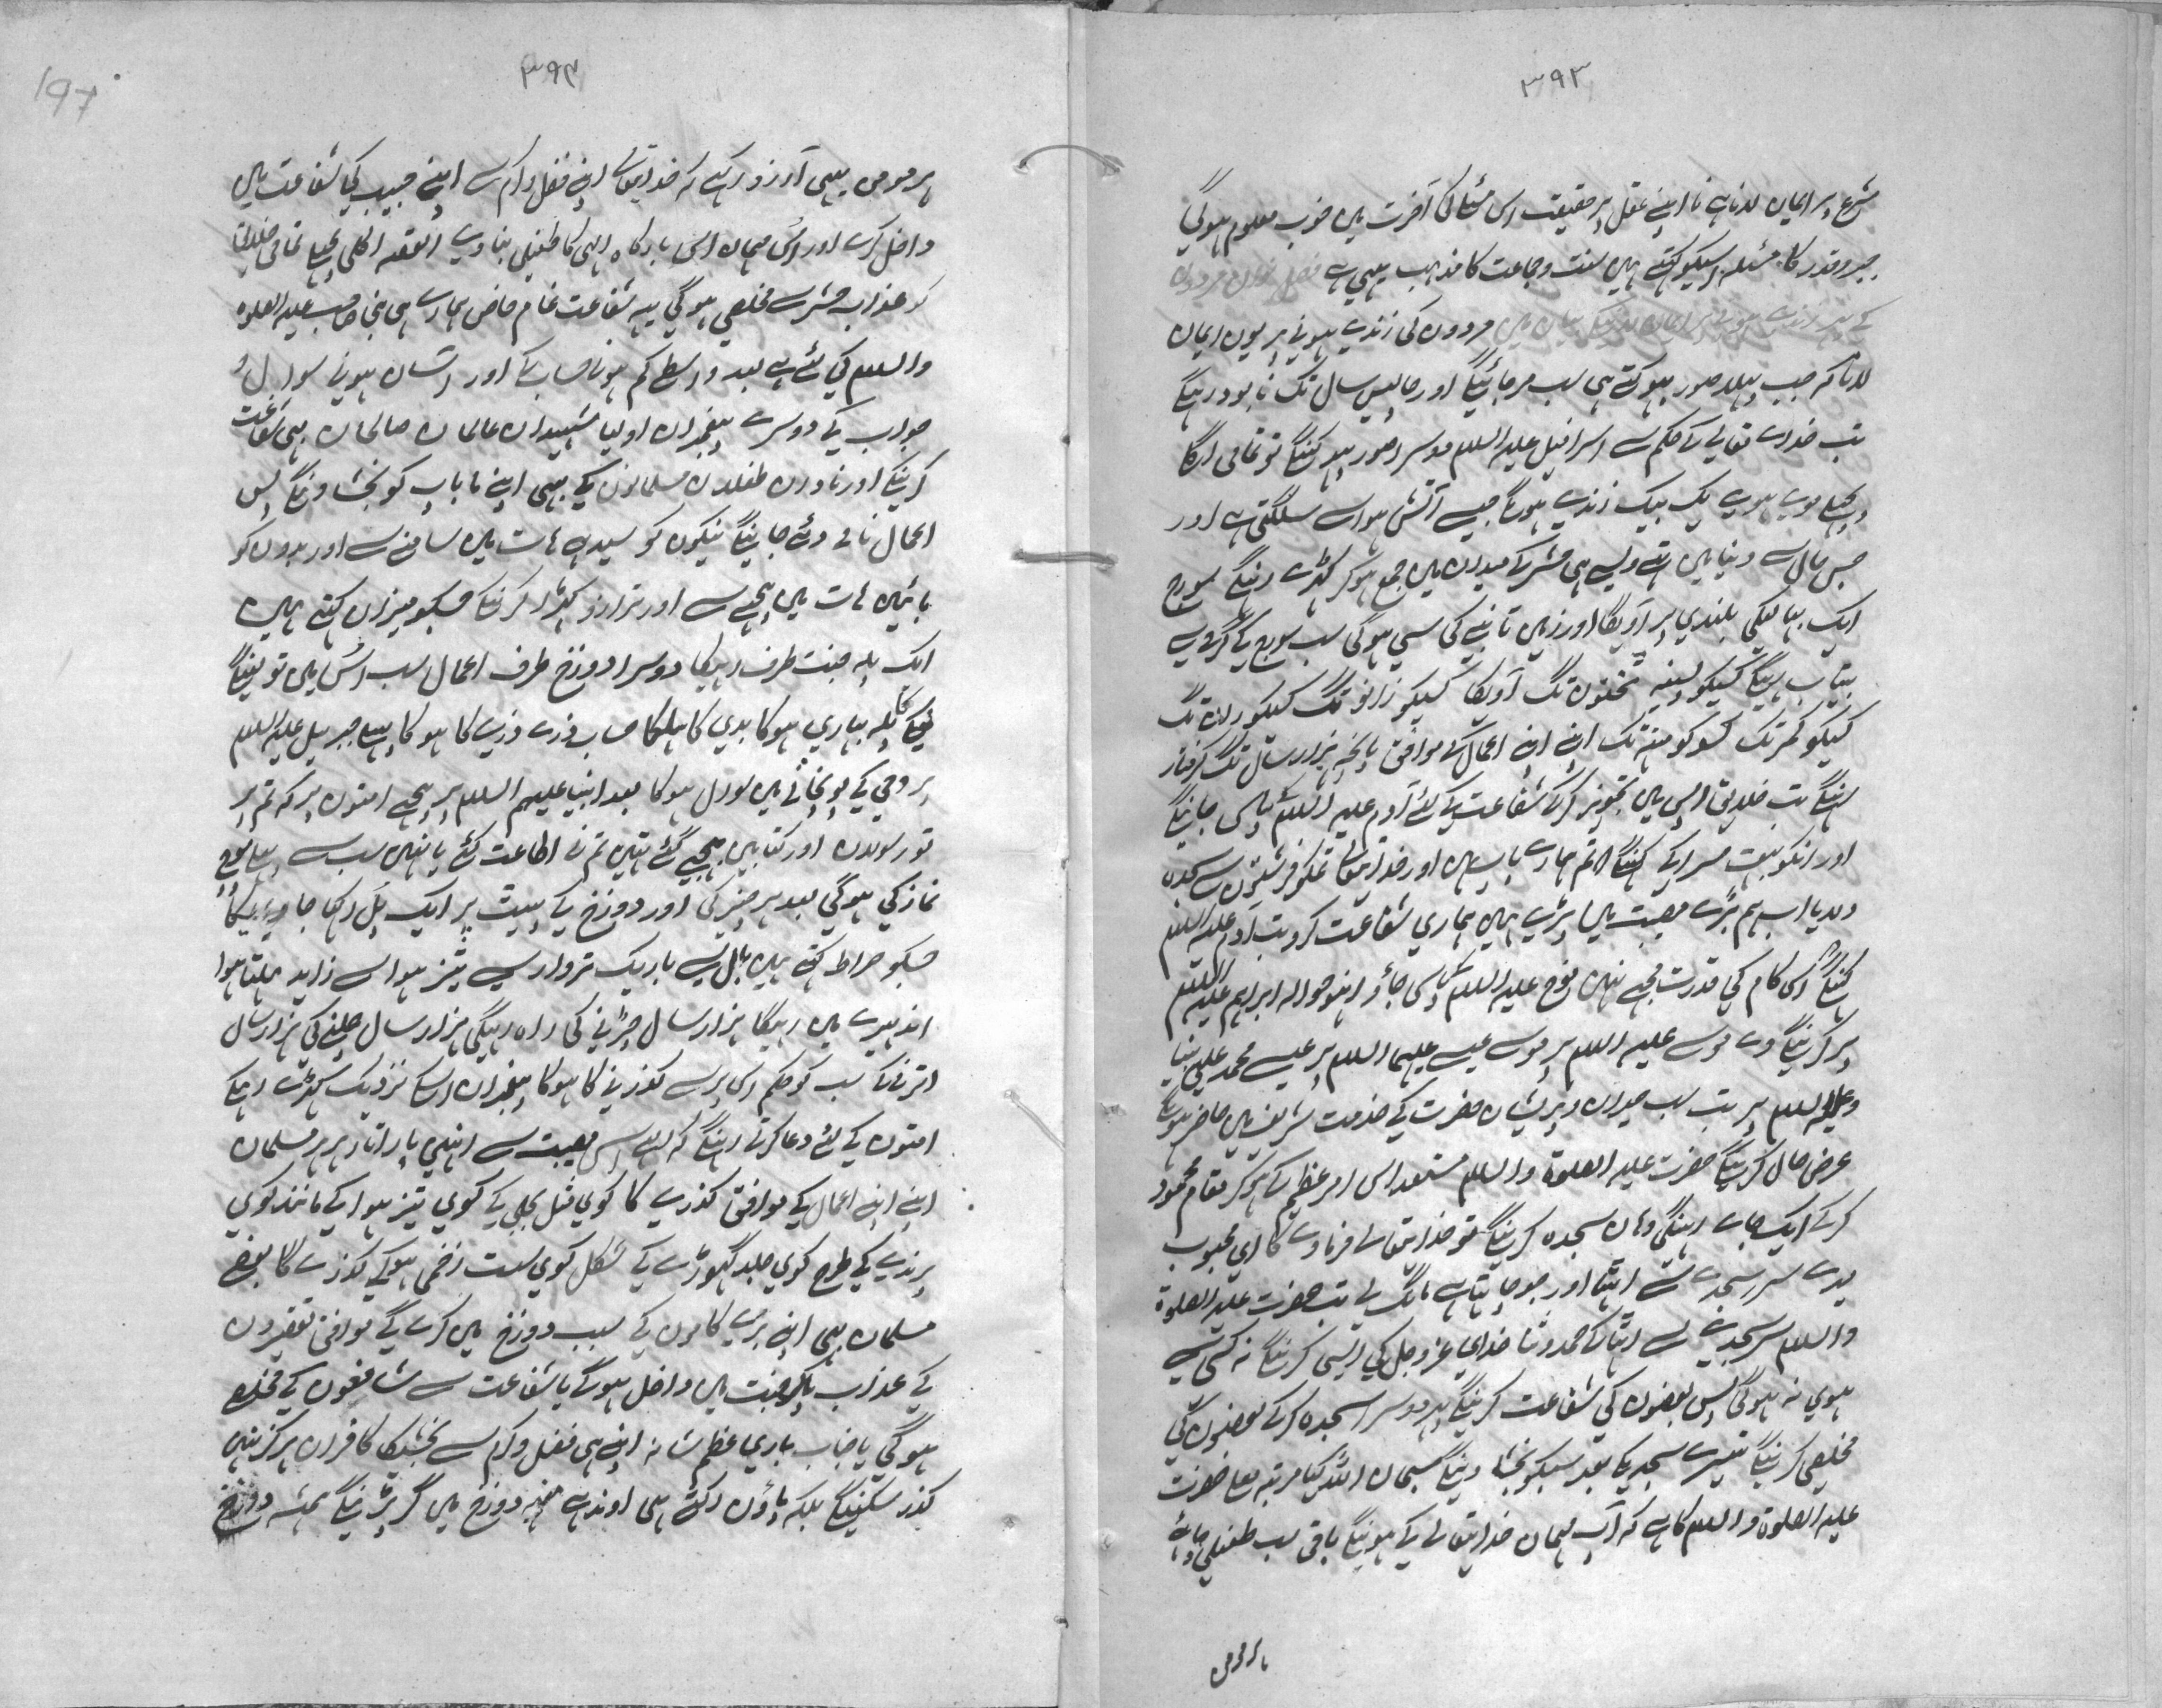 ۳۹۳
شرع پر ایمان لانا ہے نا اپنے عقل پر حقیقت اس مسئلہ کی آخرت میں خوب معلوم ہوگی
جبر و قدر کا مسئلہ اسیکو کتے ہیں سنت و جماعت کا مذہب یہی ہے فصل
مردوں کی زندے ہونے پر یوں ایمان
لانا کہ جب پہلا صور پہوکتے ہی سب مرجائینگے اور چالیس سال تک نابود رہینگے
تب خداے تعالی کے حکم سے اسرافیل علیہ السلام دوسرا صور پہوکینگے تو تمامی اگلے
پچھلے موے ہوے یک بیک زندے ہونگے جیسے آتش ہوا سے سلگتی ہے اور
جس حال سے دنیا میں تہے ویسے ہی حشر کے میدان میں جمع ہو کر کہڑے رہینگے سورج
ایک بہالیکی بلندی پر آویگا اور زمین تانبے کی سی ہوگی سب سورج کے گرمی سے
بیتاب رہینگے کسیکو پسینہ ٹخنوں تک آویگا کسیکو زانو تک کسیکو ران تک
کسیکو کمر تک کسو کو منہ تک اپنے اپنے اعمال کے موافق پانچہ ہزار سال تک گرفتار
رہینگے تب خلایق اپس میں تجویز کر کے شفاعت کے لئے آدم علیہ السلام پاس جاینگے
اور انکو بہت سرا کے کہینگے تم ہمارے باپ ہیں اور خدایتعالی تمکو فرشتوں سے سجدہ
دلایا اب ہم بڑے مصیبت میں پڑے ہیں ہماری شفاعت کرو تب آدم علیہ السلام
کہینگے اس کام کی قدرت مجھے نہیں نوح علیہ السلام کے پاس جاؤ انہو حوالہ ابراہیم علیہ السلام
پر کرینگے وے موسے علیہ السلام پر موسے عیسے علیہما السلام پر عیسے محمد علی نبینا
و علیہ السلام پر تب سب حیران و پریشان حضرت کے خدمت شریف میں حاضر ہو کے
عرض حال کرینگے حضرت علیہ الصلوۃ والسلام مستعد اس امر عظیم کے ہو کر مقام محمود
کر کے ایک جاے رہینگی وہاں سجدہ کرینگے تو خدایتعالے فرماوے گا اے محبوب
میرے سر سجدے سے اٹھا اور جو چاہتا ہے مانگ لے تب حضرت علیہ الصلوۃ
والسلام سر سجدے سے اٹھا کے حمد و ثنا خداے عز و جل کی ایسی کرینگے نہ کسی سے
ہوی نہ ہوگی پس بعضوں کی شفاعت کرینگے پہر دوسرا سجدہ کر کے بعضوں کی
مخلصی کرینگے تیسرے سجدیکے بعد سبکو بخشا دینگے سبحان اللہ کیا مرتبہ ہے حضرت
علیہ الصلوۃ والسلام کا ہے کہ آپ مہمان خدایتعالے کے ہونگے باقی سب طفیلی چاہئے
ہر مومن
۳۹۴
197
ہر مومن یہی آرزو رکہے کہ خدایتعالے اپنے فضل و کرم سے اپنے حبیب کی شفاعت میں
داخل کرے اور اس مہمان اس بارگاہ الہی کا طفیلی بنا دیوے القصہ اگلے پچھلے تمامی خلایق
کو عذاب حشر سے مخلصی ہوگی یہہ شفاعت عام خاص ہمارے ہی جناب علیہ الصلوۃ
والسلام کی لئے ہے بعد واسطے کم ہونا حساب کے اور آسان ہونے سوال و
جواب کے دوسرے پیغمبران اولیا شہیدان عالمان صالحان بہی شفاعت
کرینگے اور نادان طفلان مسلمانوں کے بہی اپنے ما باپ کو بخشاوینگے پس
اعمال نامے دئے جاینگے نیکوں کو سیدہے ہات میں سامنے سے اور بدوں کو
بائیں ہات میں پیچھے سے اور ترازو کہڑا کرینگے جسکو میزان کہتے ہیں
ایک پلہ جنت طرف رہیگا دوسرا دوزخ طرف اعمال سب اس میں تولینگے
نیکی کا پلہ بہاری ہوگا بدی کا ہلکا حساب ذرے ذریکا ہوگا پہلے جبریل علیہ السلام
پر وحی کے پونچانے میں سوال ہوگا بعد انبیا علیہم السلام پر پیچھے امتوں پر کہ تم پر
تو رسولاں اور کتابیں بہیجے گئے تہیں تم نے اطاعت کئے یا نہیں سب سے پہلے پوچ
نماز کی ہوگی بعد ہر چیز کی اور دوزخ کے پیٹ پر ایک پل رکہا جاویگا
جسکو صراط کہتے ہیں بال سے باریک تروار سے تیز ہوا سے زاید ہلتا ہوا
اندہیرے میں رہیگا ہزار سال چڑنے کی راہ رہیگی ہزار سال چلنے کی ہزار سال
اترنے کے سب کو حکم اس پر سے گذرنے کا ہوگا پیغمبران اسکے نزدیک کہڑے رہکے
امتوں کے لئے دعا کرتے رہینگے کہ الہی اس مصیبت سے انہیں پار اتار ہر ہر مسلمان
اپنے اپنے اعمال کے موافق گذرے گا کوی مثل بجلی کے کوی تیز ہوا کے مانند کوی
پرندے کے طرح کوی جلد گہوڑے کے شکل کوی سست زخمی ہو کے گذرے گا بعضے
مسلمان بہی اپنے برے کاموں کے سبب دوزخ میں گرے گے موافق تقصیروں
کے عذاب پاکر جنت میں داخل ہوگے یا شفاعت سے شافعوں کے مخلصی
ہوگی یا جناب باری عظم شانہ اپنے ہی فضل و کرم سے بخشیگا کافران ہرگز نہیں
گذر سکینگے بلکہ پاؤں رکہتے ہی اوندہے منہ دوزخ میں گر پڑینگے ہمیشہ دوزخ